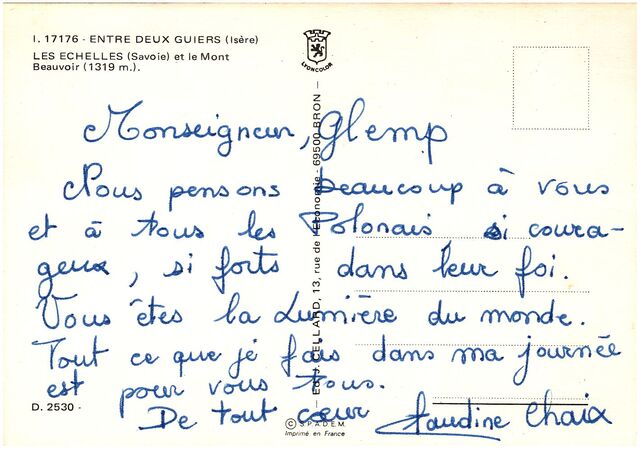 I. 17176 - ENTRE DEUX GUIERS (Isère)
LES ECHELLES (Savoie) et le Mont
Beauvoir (1319 m.).
LYONCOLOR
Monseigneur, Glemp
Nous pensons beaucoup à vous
et à tous les Polonais si coura-
geux, si forts dans leur foi.
Vous êtes la Lumière du monde.
Tout ce que je fais dans ma journée
est pour vous tous.
De tout cœur Claudine Chaix
D. 2530 -
Ed. J. CELLARD, 13, rue de l'Economie - 69500 BRON -
© S.P.A.D.E.M.
Imprimé en France